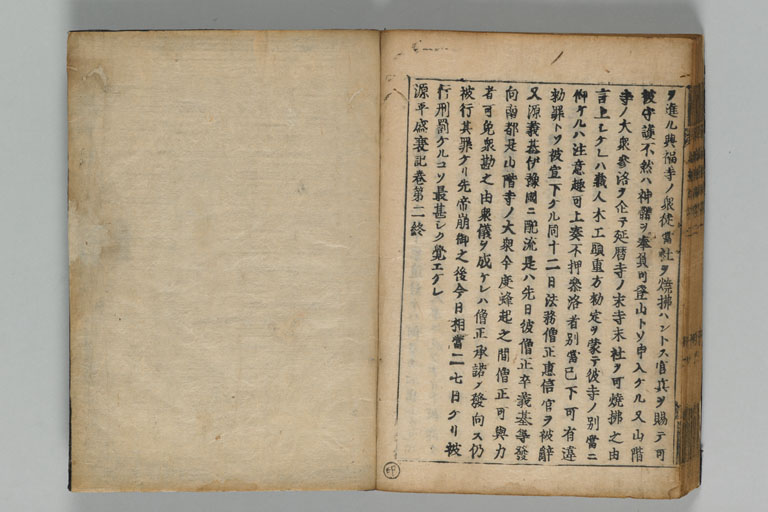 ヲ進ル興福寺ノ衆徒當社ヲ燒拂ハントス官兵ヲ賜テ可
被守護不然ハ神體ヲ奉負可登山トソ申入ケル又山階
寺ノ大衆參洛ヲ企テ延暦寺ノ末寺末社ヲ可燒拂之由
言上シケレハ藏人木工頭重方勅定ヲ蒙テ彼寺ノ別當ニ
仰ケルハ注意趣可上奏不押參洛者別當已下可有違
勅罪トソ被宣下ケル同十二日法務僧正惠信官ヲ被辭
又源義基伊豫國ニ配流是ハ先日彼僧正卒義基等發
向南都是山階寺ノ大衆今度蜂起之間僧正可與力
者可免衆勘之由衆儀ヲ成ケレハ僧正承諾シ發向ス仍
被行其罪ケリ先帝崩御之後今日相當二七日ケリ被
行刑罰ケルコソ最甚シク覺エケレ
源平盛衰記卷第二終